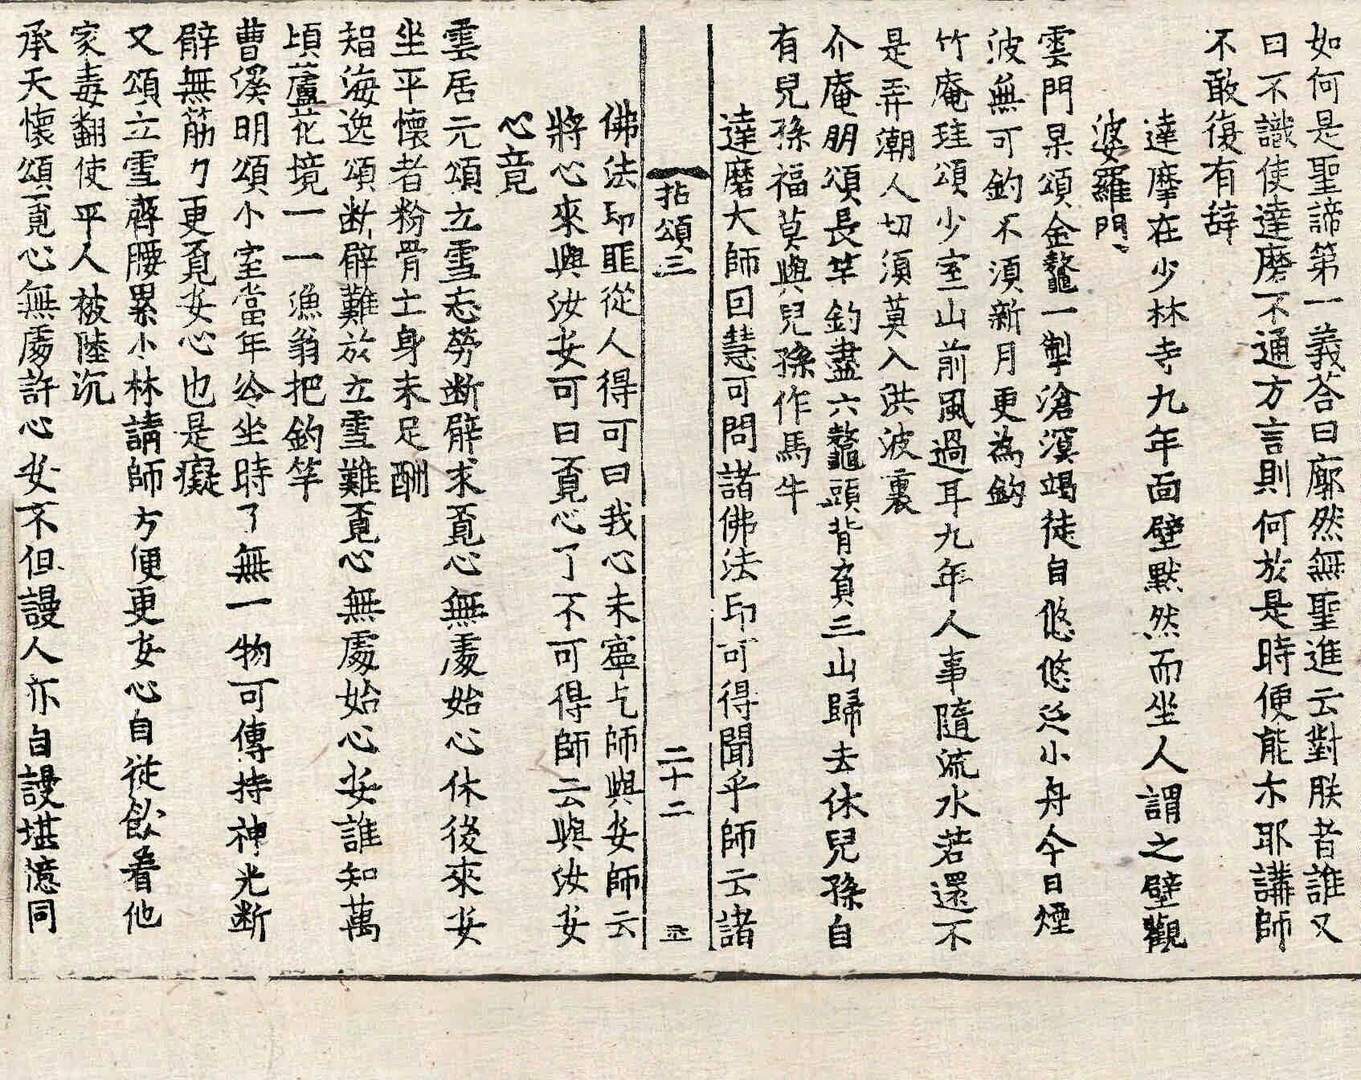 如何是聖諦第一義荅曰廓然無聖進云對朕者誰又
曰不識使達磨不通方言則何於是時便能尒耶講師
不敢復有辞
達摩在少林寺九年面壁默然而坐人謂之壁觀
婆羅門
雲門杲頌金鼇一掣滄溟竭徒自悠悠泛小舟今日煙
波無可釣不須新月更為鈎
竹庵珪頌少室山前風過耳九年人事隨流水若還不
是弄潮人切須莫入洪波裏
介庵朋頌長竿釣盡六鼇頭背負三山歸去休兒孫自
有兒孫福莫與兒孫作馬牛
達磨大師囙慧可問諸佛法印可得聞乎師云諸
拈頌三
二十二
佛法印匪從人得可曰我心未寧乞師與安師云
將心來與汝安可曰覓心了不可得師云與汝安
心竟
雲居元頌立雪忘勞断臂求覓心無處始心休後來安
坐平懷者粉骨士身未足酬
智海逸頌断臂難於立雪難覓心無處始心安誰知萬
頃蘆花境一一漁翁把釣竿
曹溪明頌小室當年冷坐時了無一物可傳持神光断
臂無筋力更覓安心也是癡
又頌立雪齊腰累小林請師方便更安心自從飲着他
家毒翻使平人被陸沉
承天懷頌覓心無處許心安不但謾人亦自謾堪憶同